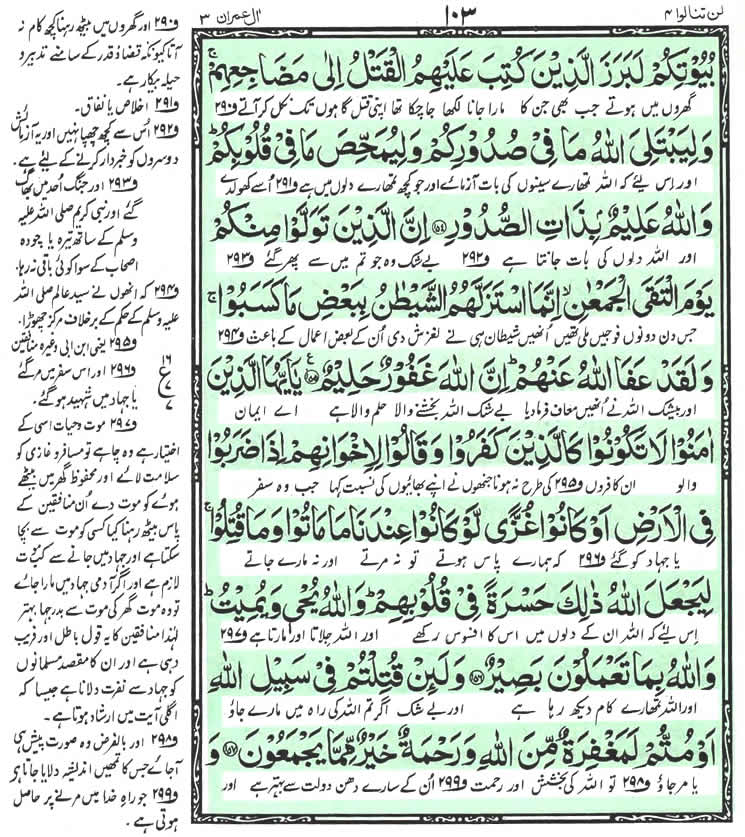 لن تنالوا ۴
۱۰۳
اٰل عمران ۳
بُیُوْتِكُمْ لَبَرَزَ الَّذِیْنَ كُتِبَ عَلَیْهِمُ الْقَتْلُ اِلٰى مَضَاجِعِهِمْ ۚ
گھروں میں ہوتے جب بھی جن کا مارا جانا لکھا جاچکا تھا اپنی قتل گاہوں تک نکل کر آتے و۲۹۰
وَلِیَبْتَلِیَ اللّٰهُ مَا فِیْ صُدُوْرِكُمْ وَلِیُمَحِّصَ مَا فِیْ قُلُوْبِكُمْ ؕ
اور اِس لیئے کہ اللہ تمھارے سینوں کی بات آزمائے اور جو کچھ تمھارے دلوں میں ہے و۲۹۱ اُسے کھولدے
وَاللّٰهُ عَلِیْمٌۢ بِذَاتِ الصُّدُوْرِ ﴿۱۵۴﴾ اِنَّ الَّذِیْنَ تَوَلَّوْا مِنْكُمْ
اور اللہ دلوں کی بات جانتا ہے و۲۹۲ بے شک وہ جو تم میں سے پھر گئے و۲۹۳
یَوْمَ الْتَقَى الْجَمْعٰنِ ۙ اِنَّمَا اسْتَزَلَّهُمُ الشَّیْطٰنُ بِبَعْضِ مَا كَسَبُوْا ۚ
جس دن دونوں فوجیں ملی تھیں اُنھیں شیطان ہی نے لغزش دی اُن کے بعض اعمال کے باعث و۲۹۴
وَلَقَدْ عَفَا اللّٰهُ عَنْهُمْ ؕ اِنَّ اللّٰهَ غَفُوْرٌ حَلِیْمٌ ﴿۱۵۵﴾ یٰۤاَیُّهَا الَّذِیْنَ
اور بیشک اللہ نے اُنھیں معاف فرمادیا بے شک اللہ بخشنے والا حلم والا ہے اے ایمان
اٰمَنُوْا لَا تَكُوْنُوْا كَالَّذِیْنَ كَفَرُوْا وَقَالُوْا لِاِخْوَانِهِمْ اِذَا ضَرَبُوْا
والو ان کافروں و۲۹۵ کی طرح نہ ہونا جنھوں نے اپنے بھائیوں کی نسبت کہا جب وہ سفر
فِی الْاَرْضِ اَوْ كَانُوْا غُزًّى لَّوْ كَانُوْا عِنْدَنَا مَا مَاتُوْا وَمَا قُتِلُوْا ۚ
یا جہاد کو گئے و۲۹۶ کہ ہمارے پاس ہوتے تو نہ مرتے اور نہ مارے جاتے
لِیَجْعَلَ اللّٰهُ ذٰلِكَ حَسْرَةً فِیْ قُلُوْبِهِمْ ؕ وَاللّٰهُ یُحْیٖ وَیُمِیْتُ ؕ
اِس لیئے کہ اللہ ان کے دلوں میں اس کا افسوس رکھے اور اللہ جلاتا اور مارتا ہے و۲۹۷
وَاللّٰهُ بِمَا تَعْمَلُوْنَ بَصِیْرٌ ﴿۱۵۶﴾ وَلَىِٕنْ قُتِلْتُمْ فِیْ سَبِیْلِ اللّٰهِ
اور اللہ تمھارے کام دیکھ رہا ہے اور بے شک اگر تم اللہ کی راہ میں مارے جاؤ
اَوْ مُتُّمْ لَمَغْفِرَةٌ مِّنَ اللّٰهِ وَرَحْمَةٌ خَیْرٌ مِّمَّا یَجْمَعُوْنَ ﴿۱۵۷﴾ وَ
یا مرجاؤ و۲۹۸ تو اللہ کی بخشش اور رحمت و۲۹۹ اُن کے سارے دھن دولت سے بہتر ہے اور
و۲۹۰ اور گھروں میں بیٹھ رہنا کچھ کام نہ
آتا کیونکہ قضاؤ قدر کے سامنے تدبیر و
حیلہ بیکار ہے۔
و۲۹۱ اخلاص یا نفاق۔
و۲۹۲ اُس سے کچھ چھپا نہیں اور یہ آزمائش
دوسروں کو خبردار کرنے کے لیئے ہے۔
و۲۹۳ اور جنگ اُحد میں بھاگ
گئے اور نبی کریم صلی اللہ علیہ
وسلم کے ساتھ تیرہ یا چودہ
اصحاب کے سوا کوئی باقی نہ رہا۔
و۲۹۴ کہ انھوں نے سید عالم صلی اللہ
علیہ وسلم کے حکم کے برخلاف مرکز چھوڑا۔
و۲۹۵ یعنی ابن ابی وغیرہ منافقین
و۲۹۶ اور اس سفر میں مرگئے
یا جہاد میں شہید ہوگئے۔
و۲۹۷ موت و حیات اسی کے
اختیار ہے وہ چاہے تو مسافر و غازی کو
سلامت لائے اور محفوظ گھر میں بیٹھے
ہوئے کو موت دے اُن منافقین کے
پاس بیٹھ رہنا کیا کسی کو موت سے بچا
سکتا ہے اور جہاد میں جانے سے کب موت
لازم ہے اور اگر آدمی جہاد میں مارا جائے
تو وہ موت گھر کی موت سے بدرجہا بہتر
لہٰذا منافقین کا یہ قول باطل اور فریب
دہی ہے اور ان کا مقصد مسلمانوں
کو جہاد سے نفرت دلانا ہے جیسا کہ
اگلی آیت میں ارشاد ہوتا ہے۔
و۲۹۸ اور بالفرض وہ صورت پیش ہی
آجائے جس کا تمھیں اندیشہ دلایا جاتا ہے
و۲۹۹ جو راہِ خدا میں مرنے پر حاصل
ہوتی ہے۔
۱۶
ع
۷
۷